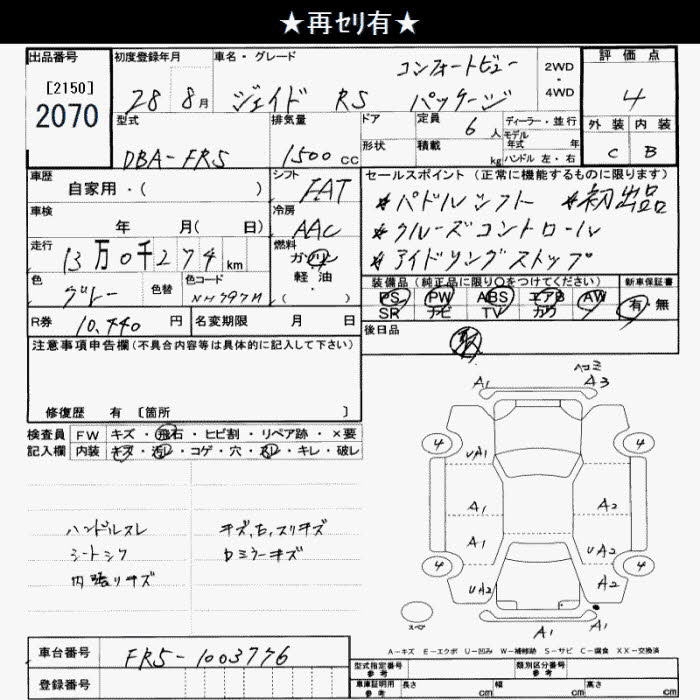 ★再セリ有★
出品番号
[2150]
2070
初度登録年月
28 8月
車名・グレード
コンフォートビュー
ジェイド RS パッケージ
2WD
・
4WD
評価点
4
外装 内装
C B
型式
DBA-FR5
排気量
1500 CC
ドア
形状
定員
6 人
積載
kg
ディーラー・並行
モデル
年式 年
ハンドル 左・右
車歴
自家用・( )
車検
年 月( 日)
走行
13万0千274 km
色
グレー
色替
色コード
NH797M
シフト
FAT
冷房
AAC
燃料
ガソリン
軽・油
( )
セールスポイント (正常に機能するものに限ります)
*パドルシフト *初出品
*クルーズコントロール
*アイドリングストップ
装備品 (純正品に限り○をつけてください)
PS PW ABS エアB AW
SR ナビ TV カワ
新車保証書
有 無
R券 10,440 円
名変期限 月 日
後日品
注意事項申告欄(不具合内容等は具体的に記入して下さい)
修復歴 有 [箇所 ]
検査員 FW キズ・飛石・ヒビ割・リペア跡・×要
記入欄 内装 キズ・汚レ・コゲ・穴・スレ・キレ・破レ
ハンドルスレ
シートシワ
内張りキズ
キズ,ヒ,スリキズ
Dミラーキズ
ヘコミ
A1 A3
4 4
UA1
A1 A2
A1 UA2
4 4
UA2 A2
A1 A1
スペア
A-キズ E-エクボ U-凹み W-補修跡 S-サビ C-腐食 XX-交換済
車台番号
FR5-1003776
登録番号
型式指定番号
参考
類別区分番号
参考
車庫証明用
参考
長さ cm 幅 cm 高さ cm